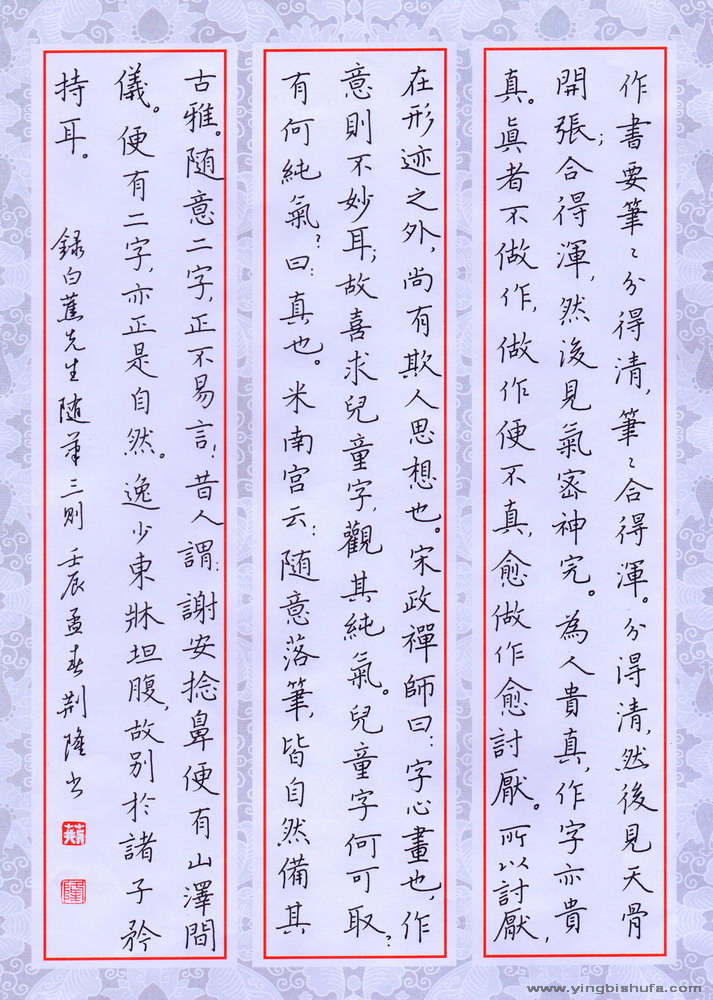 作書要筆〻分得清,筆〻合得渾。分得清,然後見天骨
開張;合得渾,然後見氣密神完。為人貴真,作字亦貴
真。眞者不做作,做作便不真,愈做作愈討厭。所以討厭,
在形迹之外,尚有欺人思想也。宋政禪師曰:字心畫也,作
意則不妙耳;故喜求兒童字,觀其純氣。兒童字何可取?
有何純氣?曰:真也。米南宮云:随意落筆,皆自然備其
古雅。随意二字,正不易言!昔人謂:謝安捻鼻便有山澤間
儀。便有二字,亦正是自然。逸少東牀坦腹,故别於諸子矜
持耳。
録白蕉先生随筆三則 壬辰孟春荆隆书
www.yingbishufa.com